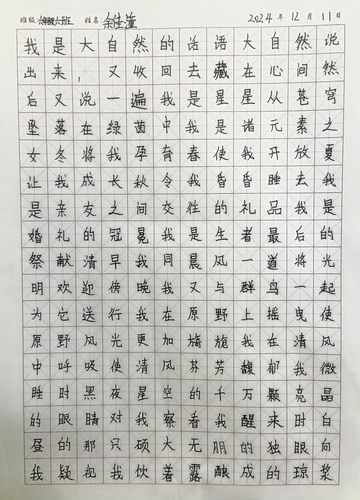 班级 六年级六班 姓名 余佳潼 2024年12月11日
我是大自然的话语大自然说
出来，又收回去藏在心间然
后又说一遍我是星星从苍穹
坠落在绿茵中我是诸元素之
女冬将我孕育春使我开放夏
让我成长秋令我昏昏睡去我
是亲友之间交往的礼品我是
婚礼的冠冕我是生者最后的
祭献清早我同晨风一道将光
明欢迎傍晚我又与群鸟一起
为它送行我在原野上摇曳使
原野风光更加旖旎我在清风
中呼吸使清风芬芳馥郁我微
睡时黑夜星空的千万颗亮晶
的眼睛对我察看我醒来时白
昼的那只硕大无朋的独眼向
我凝视我饮着露酿成的琼浆